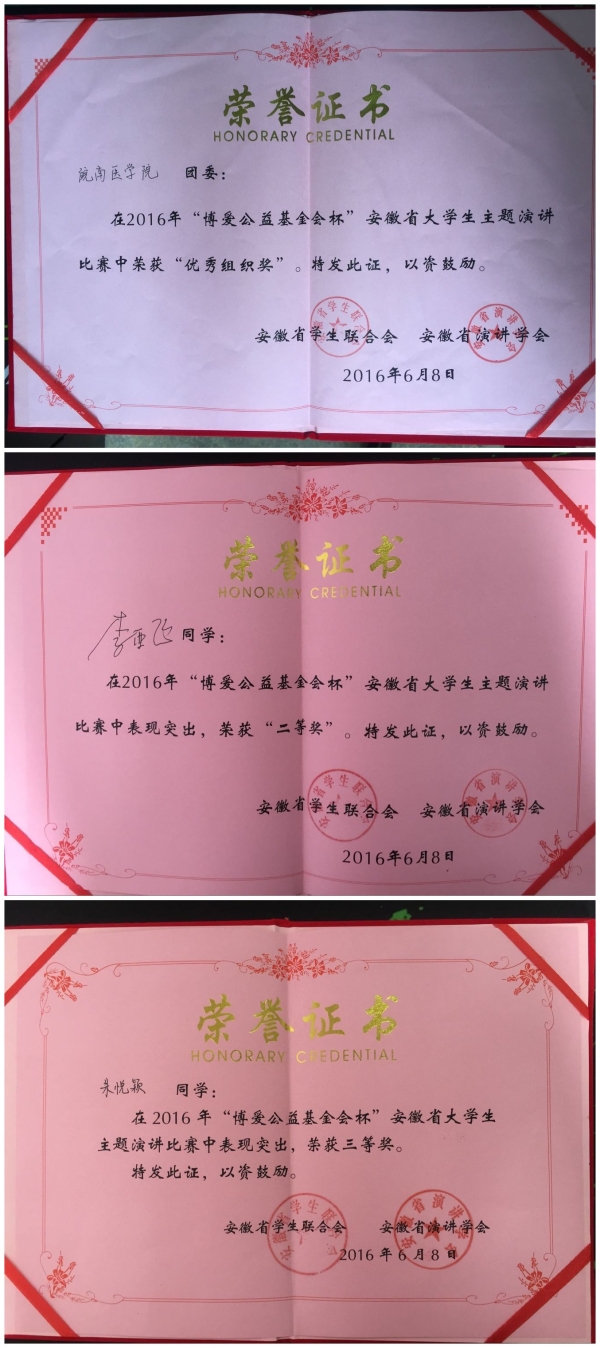 荣誉证书
HONORARY CREDENTIAL
皖南医学院 团委：
在2016年“博爱公益基金会杯”安徽省大学生主题演讲
比赛中荣获“优秀组织奖”。特发此证，以资鼓励。
安徽省学生联合会 安徽省演讲学会
2016年6月8日
荣誉证书
HONORARY CREDENTIAL
李亚运同学：
在2016年“博爱公益基金会杯”安徽省大学生主题演讲
比赛中表现突出，荣获“二等奖”。特发此证，以资鼓励。
安徽省学生联合会 安徽省演讲学会
2016年6月8日
荣誉证书
HONORARY CREDENTIAL
朱悦颖 同学：
在 2016 年“博爱公益基金会杯”安徽省大学生
主题演讲比赛中表现突出，荣获三等奖。
特发此证，以资鼓励。
安徽省学生联合会 安徽省演讲学会
2016 年 6 月 8 日